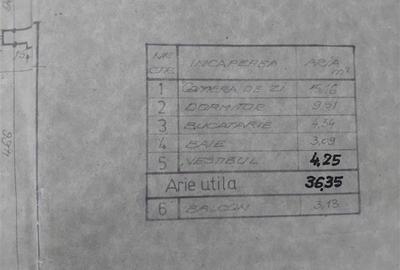 NR. CTR. INCAPEREA ARIA m²
1 CAMERA DE ZI 15,16
2 DORMITOR 9,51
3 BUCATARIE 4,34
4 BAIE 3,09
5 VESTIBUL 4,25
Arie utila 36,35
6 BALCON 3,13
4.66